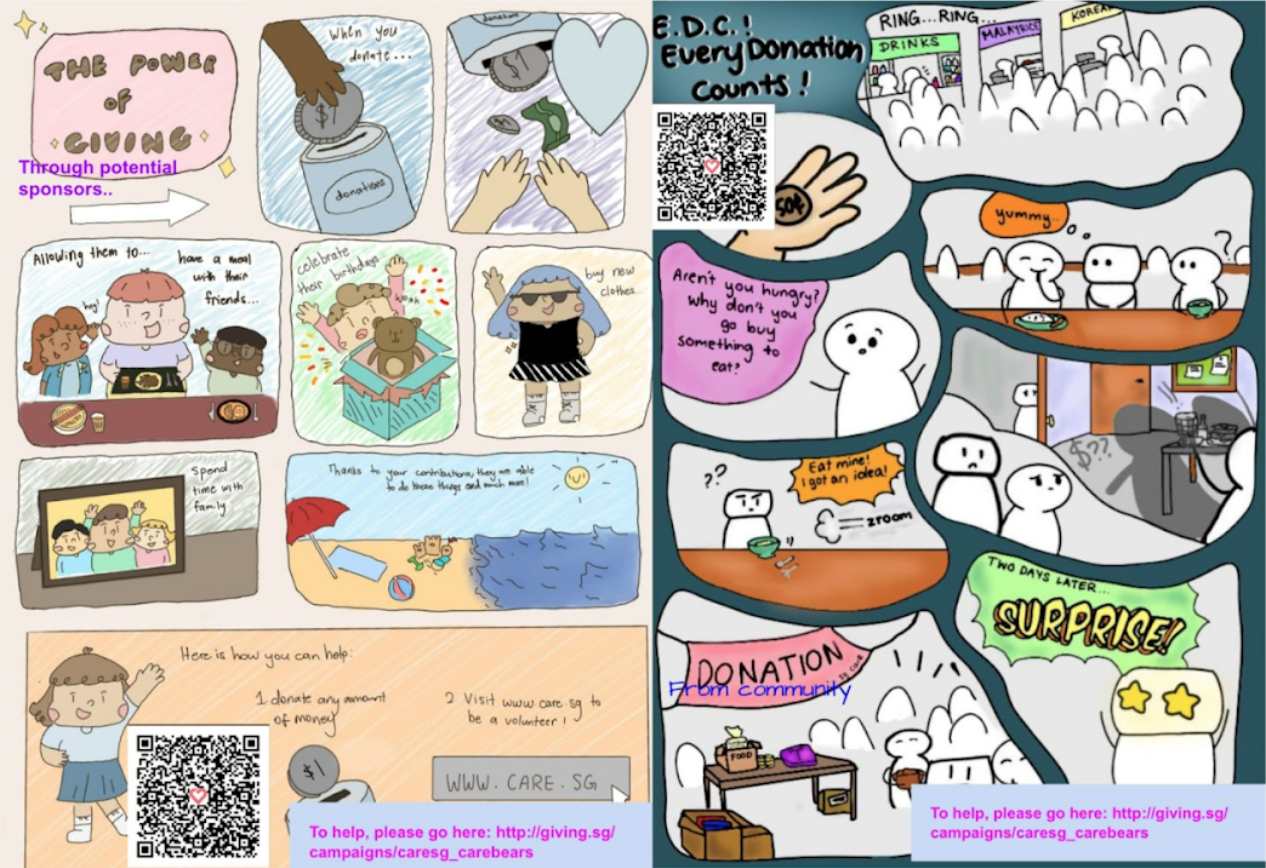 THE POWER
OF
GIVING
Through potential
sponsors..
When you
donate...
donations
donation
$1
Allowing them to...
have a meal
with their
friends...
hey!
celebrate
their birthdays
woah
buy new
clothes
spend
time with
family
Thanks to your contributions, they are able
to do these things and much more!
Here is how you can help:
1. donate any amount
of money
2 Visit www.care.sg to
be a volunteer!
$1
WWW.CARE.SG
To help, please go here: http://giving.sg/
campaigns/caresg_carebears
E.D.C.!
Every Donation
Counts!
50¢
RING...RING...
DRINKS
MALAY RICE
KOREAN
yummy..
?
Aren't you hungry?
Why don't you
go buy
something to
eat?
$??
??
Eat mine!
I got an idea!
ZROOM
TWO DAYS LATER...
SURPRISE!
DONATION
sg care
From community
FOOD
To help, please go here: http://giving.sg/
campaigns/caresg_carebears